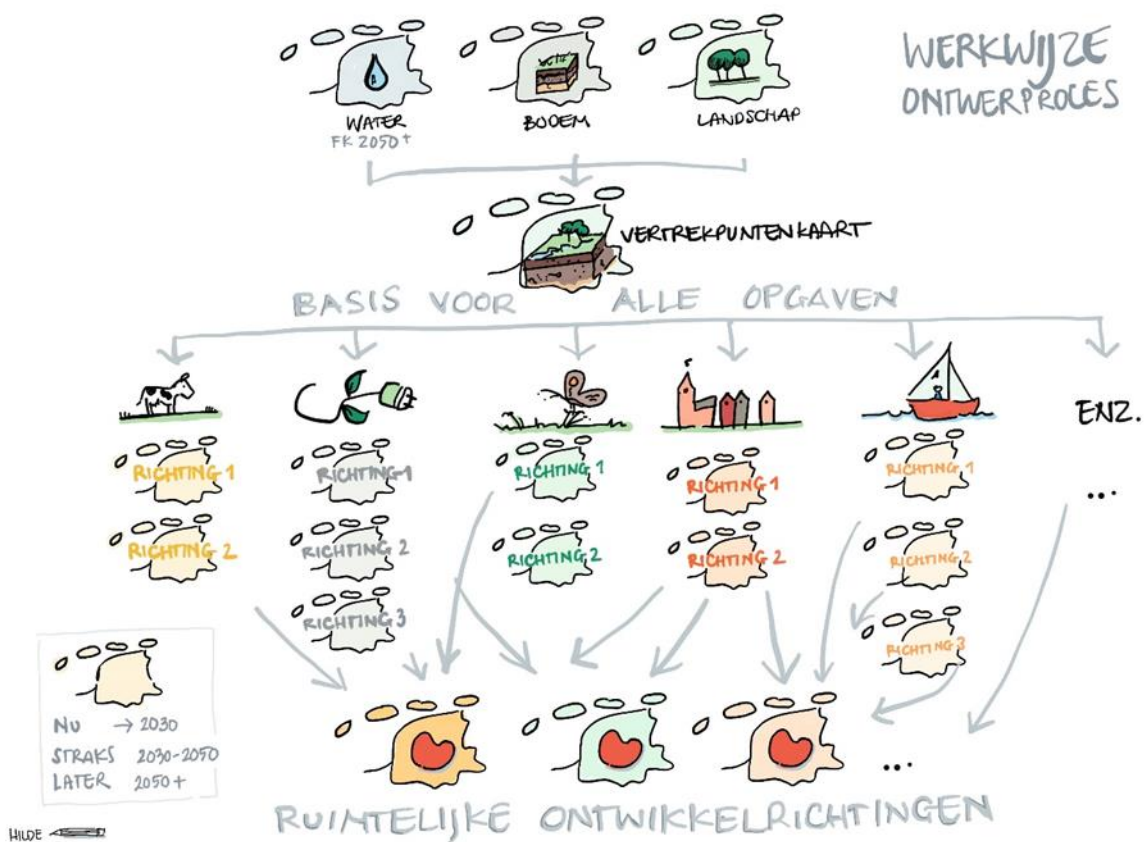 WERKWIJZE
ONTWERPROCES
WATER
FK 2050+
BODEM
LANDSCHAP
VERTREKPUNTENKAART
BASIS VOOR ALLE OPGAVEN
ENZ.
...
RICHTING 1
RICHTING 2
RICHTING 1
RICHTING 2
RICHTING 3
RICHTING 1
RICHTING 2
RICHTING 1
RICHTING 2
RICHTING 1
RICHTING 2
RICHTING 3
NU → 2030
STRAKS 2030-2050
LATER 2050+
...
RUIMTELIJKE ONTWIKKELRICHTINGEN
HILDE